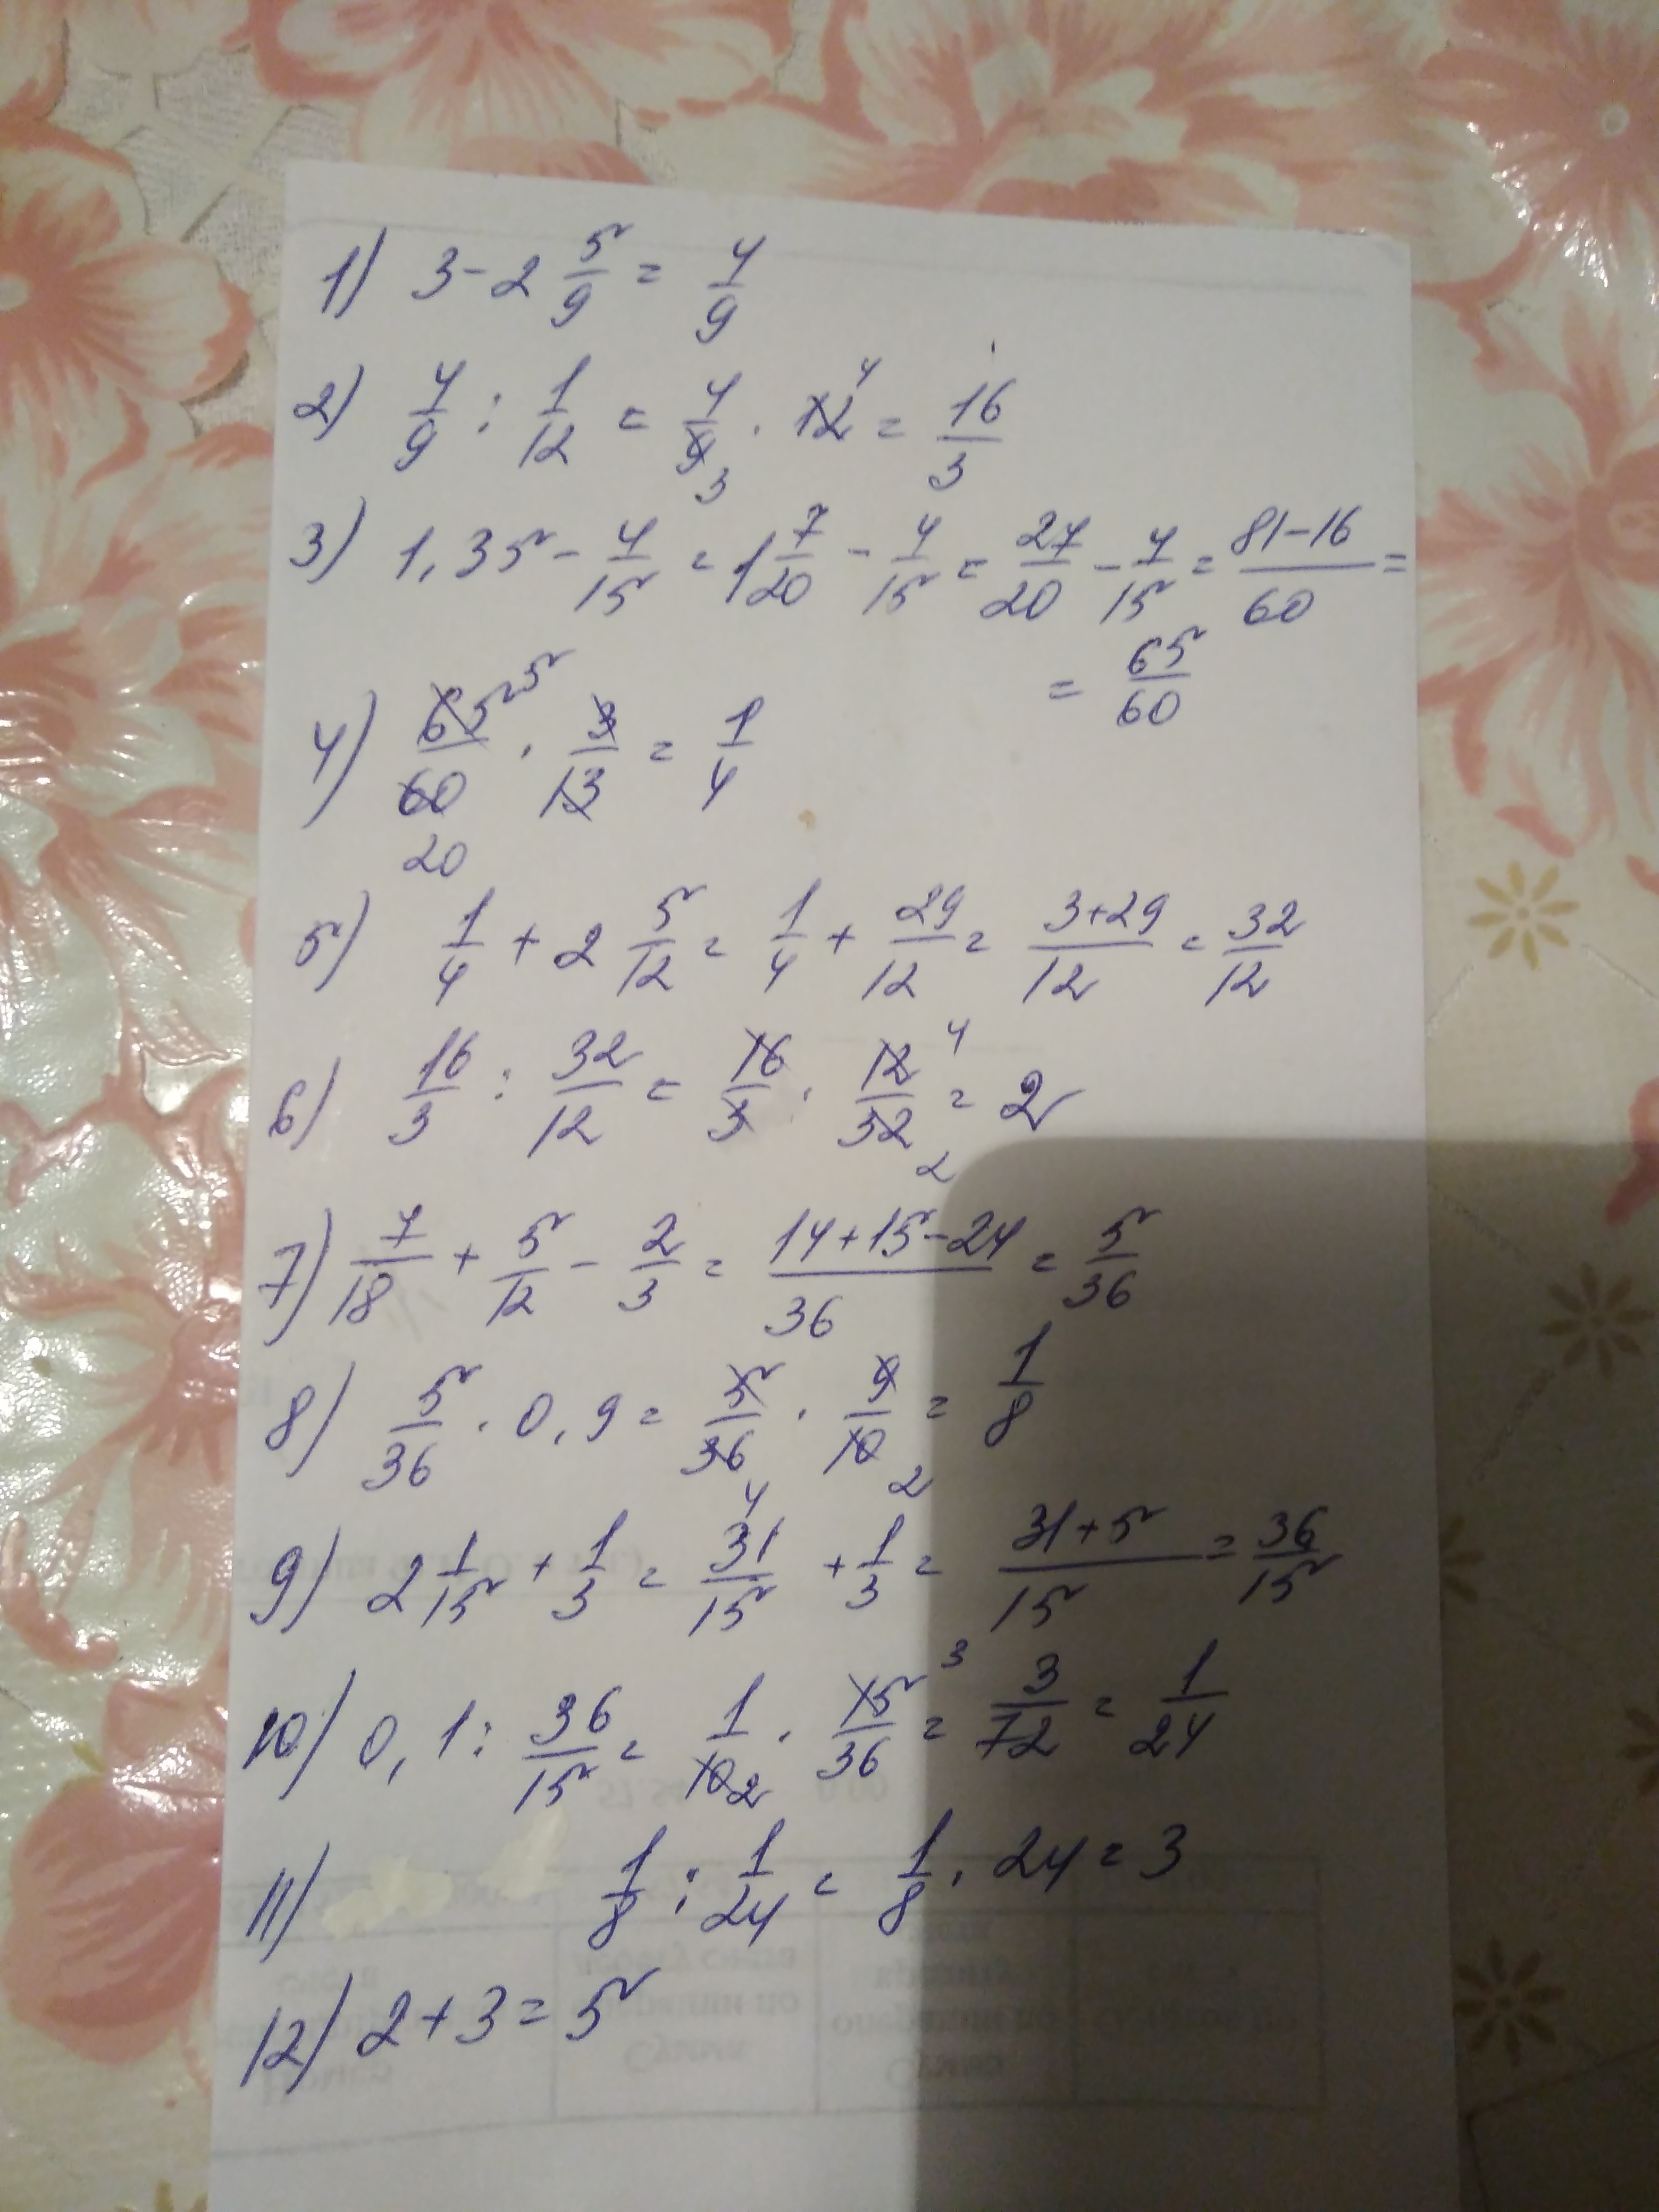 1) 3 - 2 5/9 = 4/9
2) 4/9 : 1/12 = 4/9 3 · 12 4 = 16/3
3) 1,35 - 4/15 = 1 7/20 - 4/15 = 27/20 - 4/15 = 81-16/60 =
= 65/60
4) 65 5/60 20 · 3/13 = 1/4
5) 1/4 + 2 5/12 = 1/4 + 29/12 = 3+29/12 = 32/12
6) 16/3 : 32/12 = 16/3 · 12 4/32 2 = 2
7) 7/18 + 5/12 - 2/3 = 14+15-24/36 = 5/36
8) 5/36 · 0,9 = 5/36 4 · 9/10 2 = 1/8
9) 2 1/15 + 1/3 = 31/15 + 1/3 = 31+5/15 = 36/15
10) 0,1 : 36/15 = 1/10 2 · 15 3/36 = 3/72 = 1/24
11) 1/8 : 1/24 = 1/8 · 24 = 3
12) 2+3=5